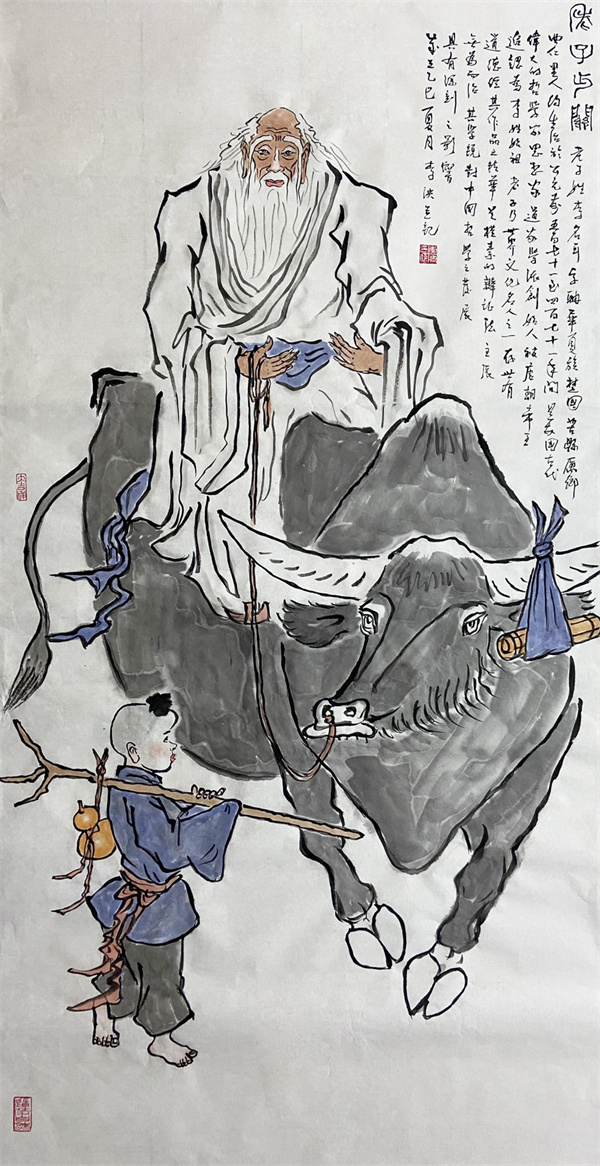 老子出關 老子姓李名耳字聃華夏族楚國苦縣厲鄉
曲仁里人約生活於公元前五百七十一至四百七十一年間 是我國古代
偉大的哲學家思想家道家學派創始人被唐朝帝王
追認爲李姓始祖 老子乃世界文化名人之一 存世有
道德經其作品之精華是樸素的辯證法 主張
無爲而治 其學説對中國哲學之發展
具有深刻之影響
歲在乙巳夏月李洪記